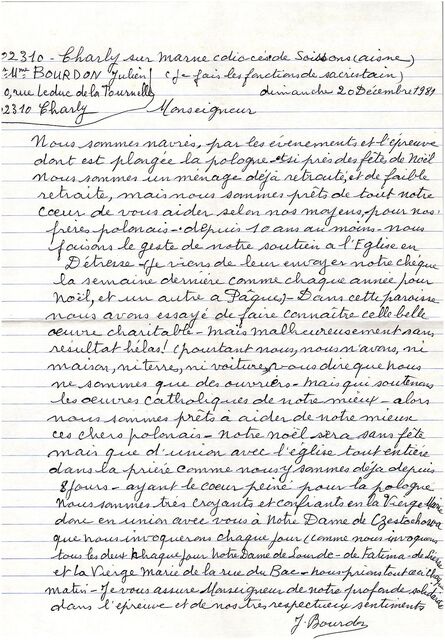 02310 - Charly sur Marne (diocèse de Soissons (aisne)
Mme BOURDON Julien (je fais les fonctions de sacristain)
0, rue Leduc de la Tournelle dimanche 20 Décembre 1981
02310 Charly Monseigneur
Nous sommes navrés, par les évènements et l'épreuve
dont est plongée la pologne et si près des fête, de Noël
nous sommes un ménage déjà retraité, et de faible
retraite, mais nous sommes prêts de tout notre
cœur de vous aider selon nos moyens, pour nos
frères polonais - depuis 10 ans au moins - nous
faisons le geste de notre soutien à l'Eglise en
Détresse - (Je viens de leur envoyer notre chèque
la semaine dernière comme chaque année pour
Noël, et un autre a Pâques) - Dans cette paroisse
nous avons essayé de faire connaître celle belle
œuvre charitable - mais malheureusement sans
résultat hélas! (pourtant nous, nous n'avons, ni
maison, ni terre, ni voiture, vous dire que nous
ne sommes que des ouvriers - mais qui soutenons
les œuvres catholiques de notre mieux - alors
nous sommes prêts à aider de notre mieux
ces chers polonais - notre noël sera sans fête
mais que d'union avec l'église tout entière
dans la prière comme nous y sommes déja depuis
8 jours - ayant le cœur peiné pour la pologne
Nous sommes très croyants et confiants en la Vierge Marie
donc en union avec vous à Notre Dame de Czestochowa
que nous invoquerons chaque jour (comme nous invoquons
tous les deux chaque jour Notre Dame de Lourde - de Fatima - de
et la Vierge Marie de la rue du Bac - nous prions tout ceci chaque
matin - Je vous assure Monseigneur de notre profonde solidarité
dans l'épreuve et de nos très respectueux sentiments
J. Bourdon